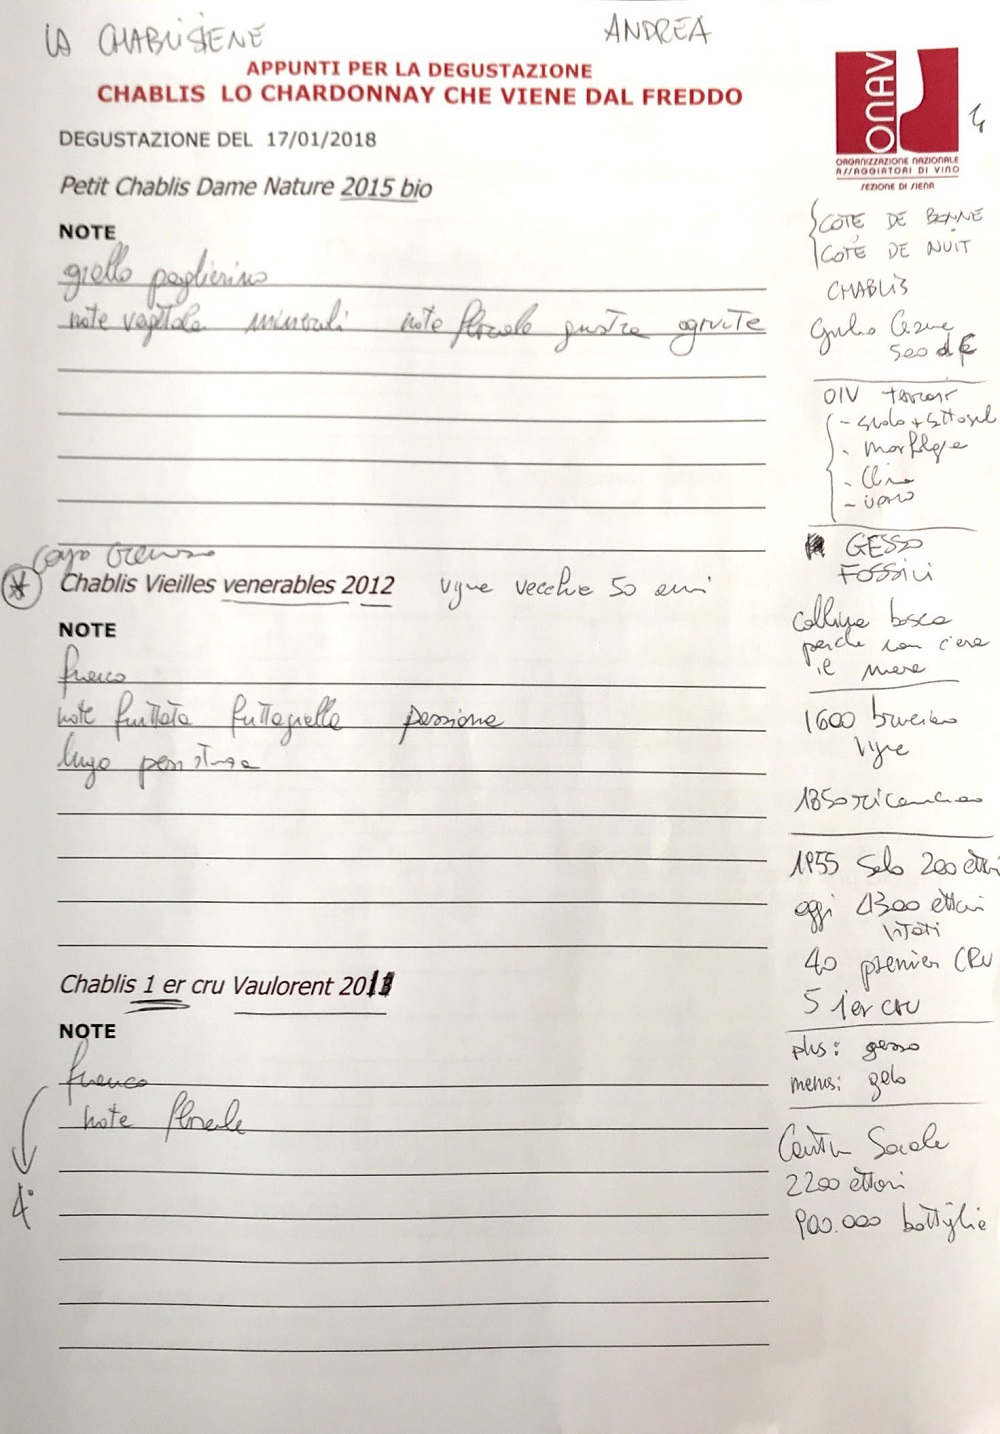 LA CHABLISIENE
ANDREA
APPUNTI PER LA DEGUSTAZIONE
CHABLIS LO CHARDONNAY CHE VIENE DAL FREDDO
DEGUSTAZIONE DEL 17/01/2018
Petit Chablis Dame Nature 2015 bio
NOTE
giallo paglierino
note vegetale minerali note floreale giusta
Chablis Vieilles venerables 2012 vigne vecchie 50 anni
NOTE
fresco
note fruttata passione
lungo persistenza
Chablis 1 er cru Vaulorent 2011
NOTE
fresco
note floreale
4°
ONAV
ORGANIZZAZIONE NAZIONALE
ASSAGGIATORI DI VINO
SEZIONE DI SIENA
COTE DE BONNE
COTE DE NUIT
CHABLIS
Giulio Cesare
500 d
OIV terroir
- suolo + sottosuol
- morfologia
- Clima
- uomo
GESSO
FOSSILI
colline bosca
perche non c'era
il mare
1600 bruciano
vigne
1850
1955 Solo 200 ettari
oggi 4300 ettari
vitati
40 premier CRU
5 1er cru
plus: gesso
menos: gelo
Cantina Sociale
2200 ettari
900.000 bottiglie